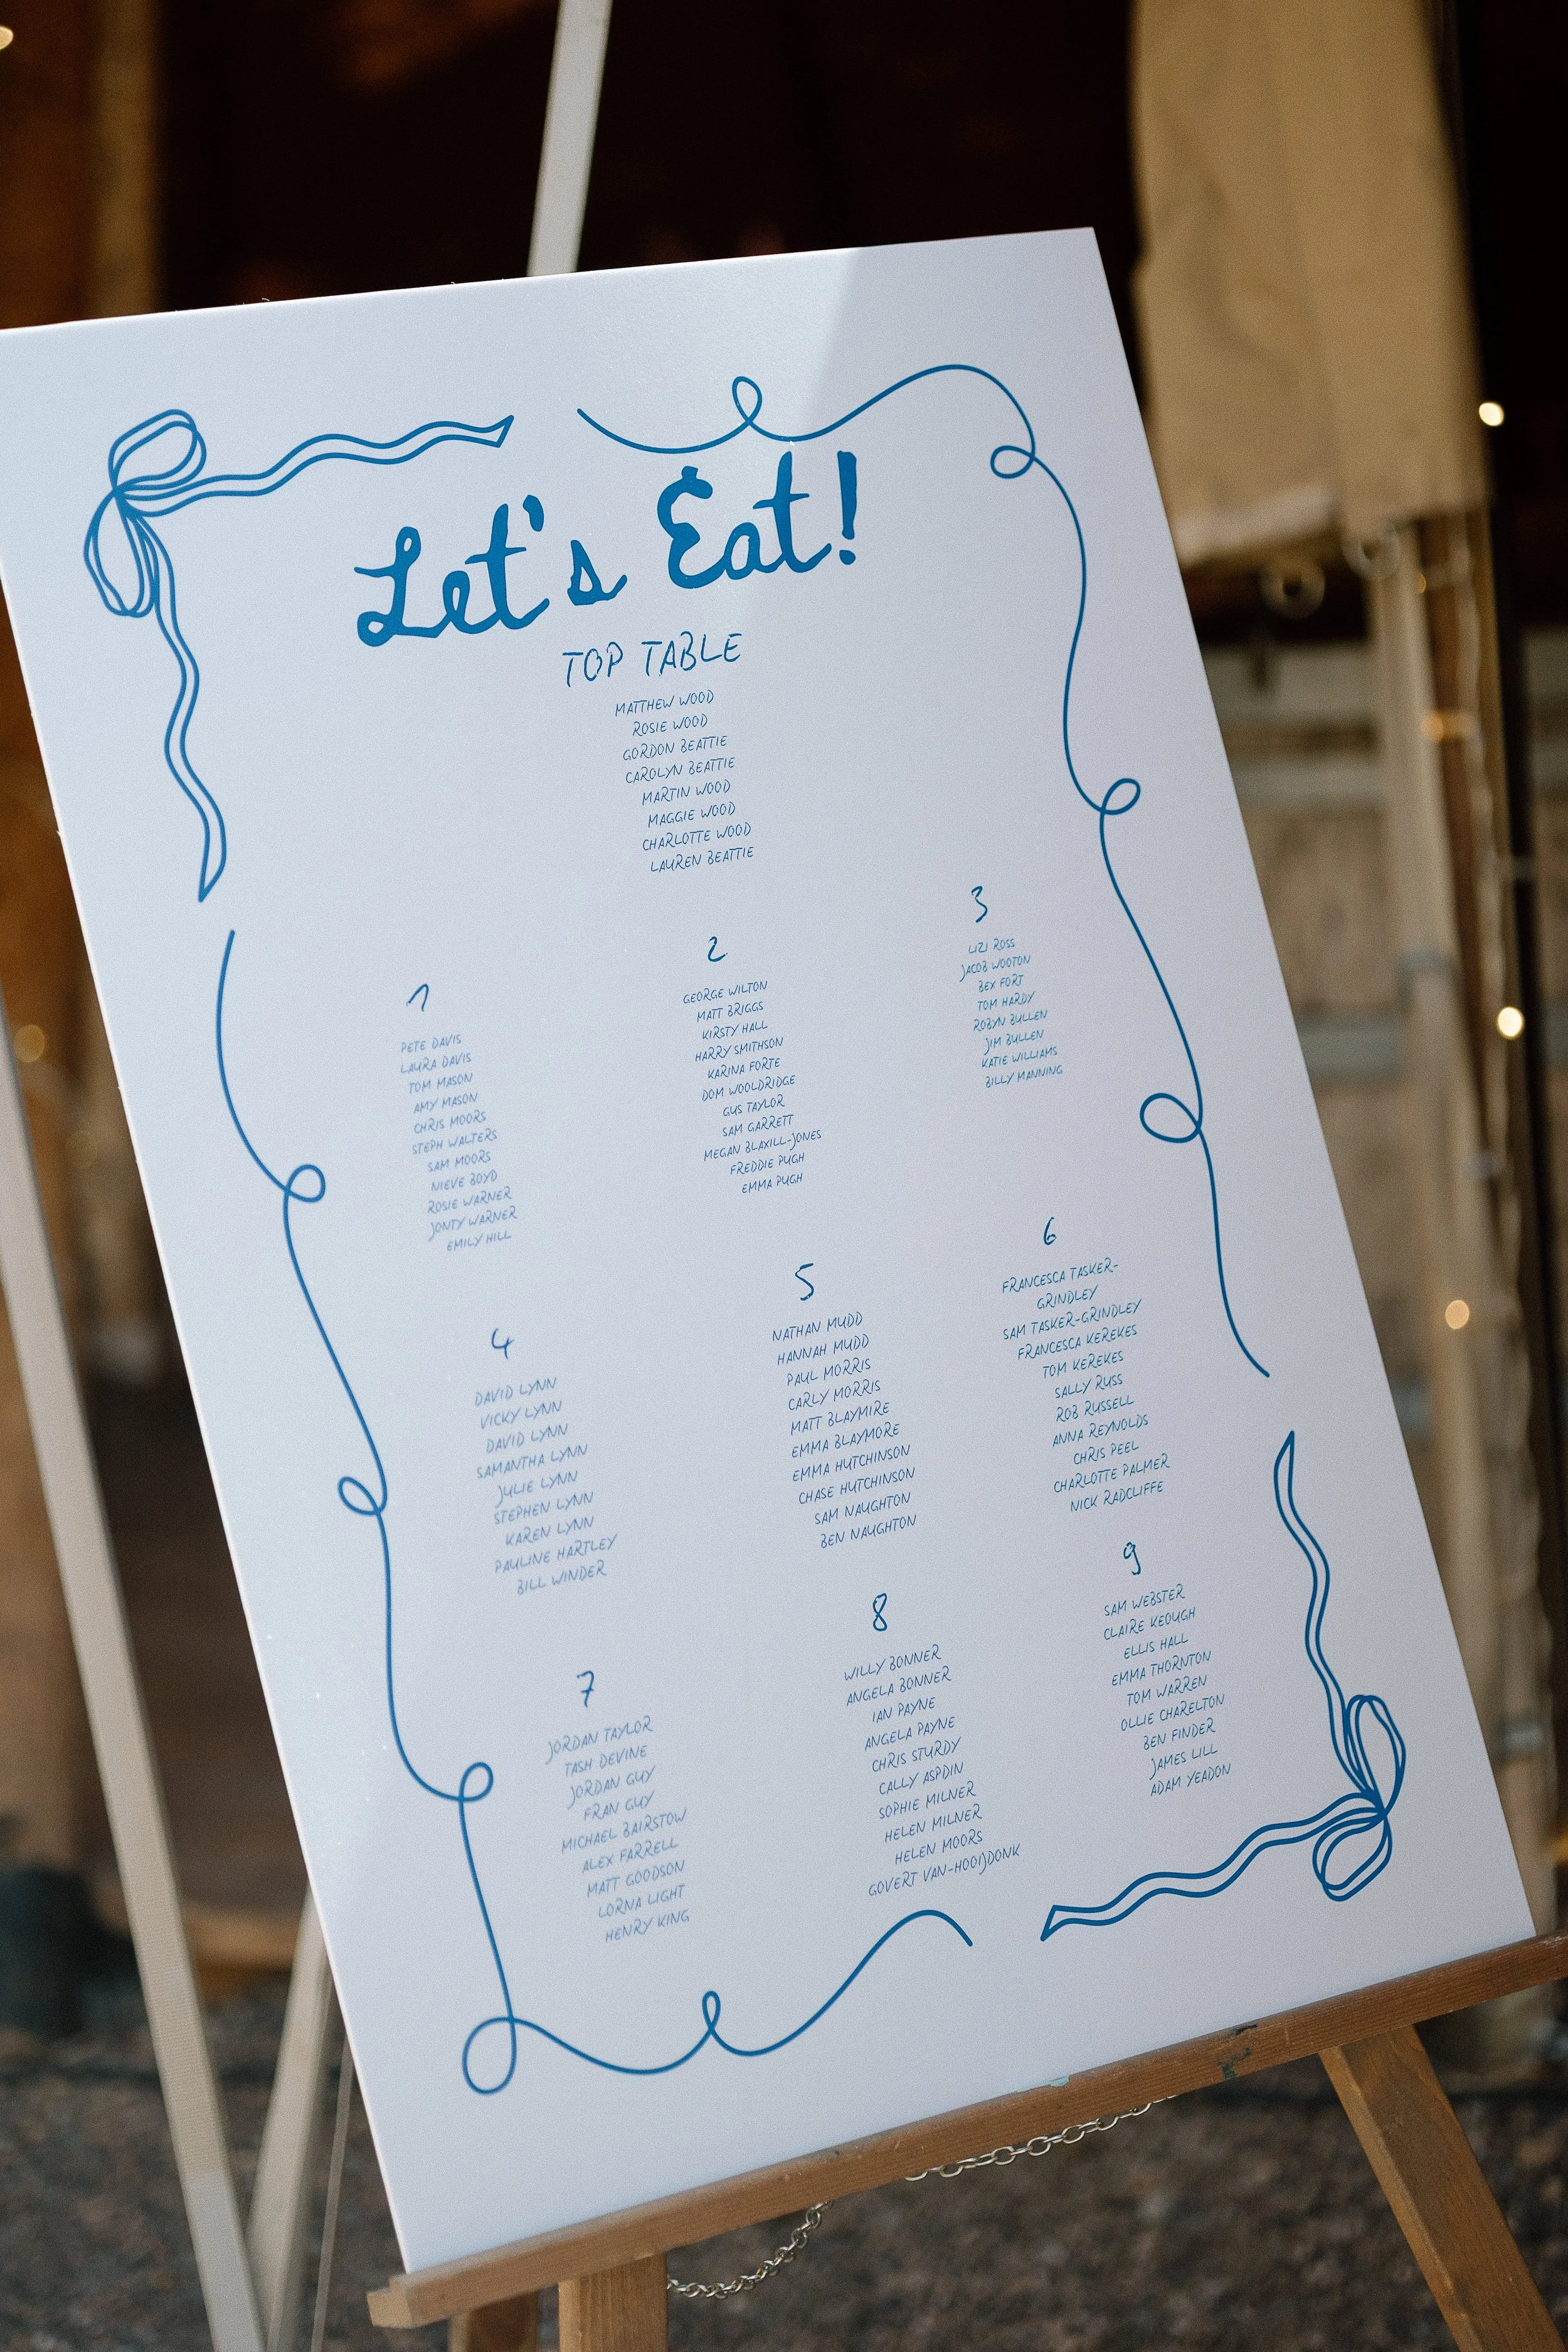 Let's Eat!
TOP TABLE
MATTHEW WOOD
ROSIE WOOD
GORDON BEATTIE
CAROLYN BEATTIE
MARTIN WOOD
MAGGIE WOOD
CHARLOTTE WOOD
LAUREN BEATTIE
1
PETE DAVIS
LAURA DAVIS
TOM MASON
AMY MASON
CHRIS MOORS
STEPH WALTERS
SAM MOORS
NIEVE BOYD
ROSIE WARNER
JONTY WARNER
EMILY HILL
2
GEORGE WILTON
MATT BRIGGS
KIRSTY HALL
HARRY SMITHSON
KARINA FORTE
DOM WOOLDRIDGE
GUS TAYLOR
SAM GARRETT
MEGAN BLAXILL-JONES
FREDDIE PUGH
EMMA PUGH
3
LIZI ROSS
JACOB WOOTON
BEX FORT
TOM HARDY
ROBYN BULLEN
JIM BULLEN
KATIE WILLIAMS
BILLY MANNING
4
DAVID LYNN
VICKY LYNN
DAVID LYNN
SAMANTHA LYNN
JULIE LYNN
STEPHEN LYNN
KAREN LYNN
PAULINE HARTLEY
BILL WINDER
5
NATHAN MUDD
HANNAH MUDD
PAUL MORRIS
CARLY MORRIS
MATT BLAYMIRE
EMMA BLAYMORE
EMMA HUTCHINSON
CHASE HUTCHINSON
SAM NAUGHTON
BEN NAUGHTON
6
FRANCESCA TASKER-
GRINDLEY
SAM TASKER-GRINDLEY
FRANCESCA KEREKES
TOM KEREKES
SALLY RUSS
ROB RUSSELL
ANNA REYNOLDS
CHRIS PEEL
CHARLOTTE PALMER
NICK RADCLIFFE
7
JORDAN TAYLOR
TASH DEVINE
JORDAN GUY
FRAN GUY
MICHAEL BAIRSTOW
ALEX FARRELL
MATT GOODSON
LORNA LIGHT
HENRY KING
8
WILLY BONNER
ANGELA BONNER
IAN PAYNE
ANGELA PAYNE
CHRIS STURDY
CALLY ASPDIN
SOPHIE MILNER
HELEN MILNER
HELEN MOORS
GOVERT VAN-HOOIJDONK
9
SAM WEBSTER
CLAIRE KEOUGH
ELLIS HALL
EMMA THORNTON
TOM WARREN
OLLIE CHARELTON
BEN FINDER
JAMES LILL
ADAM YEADON